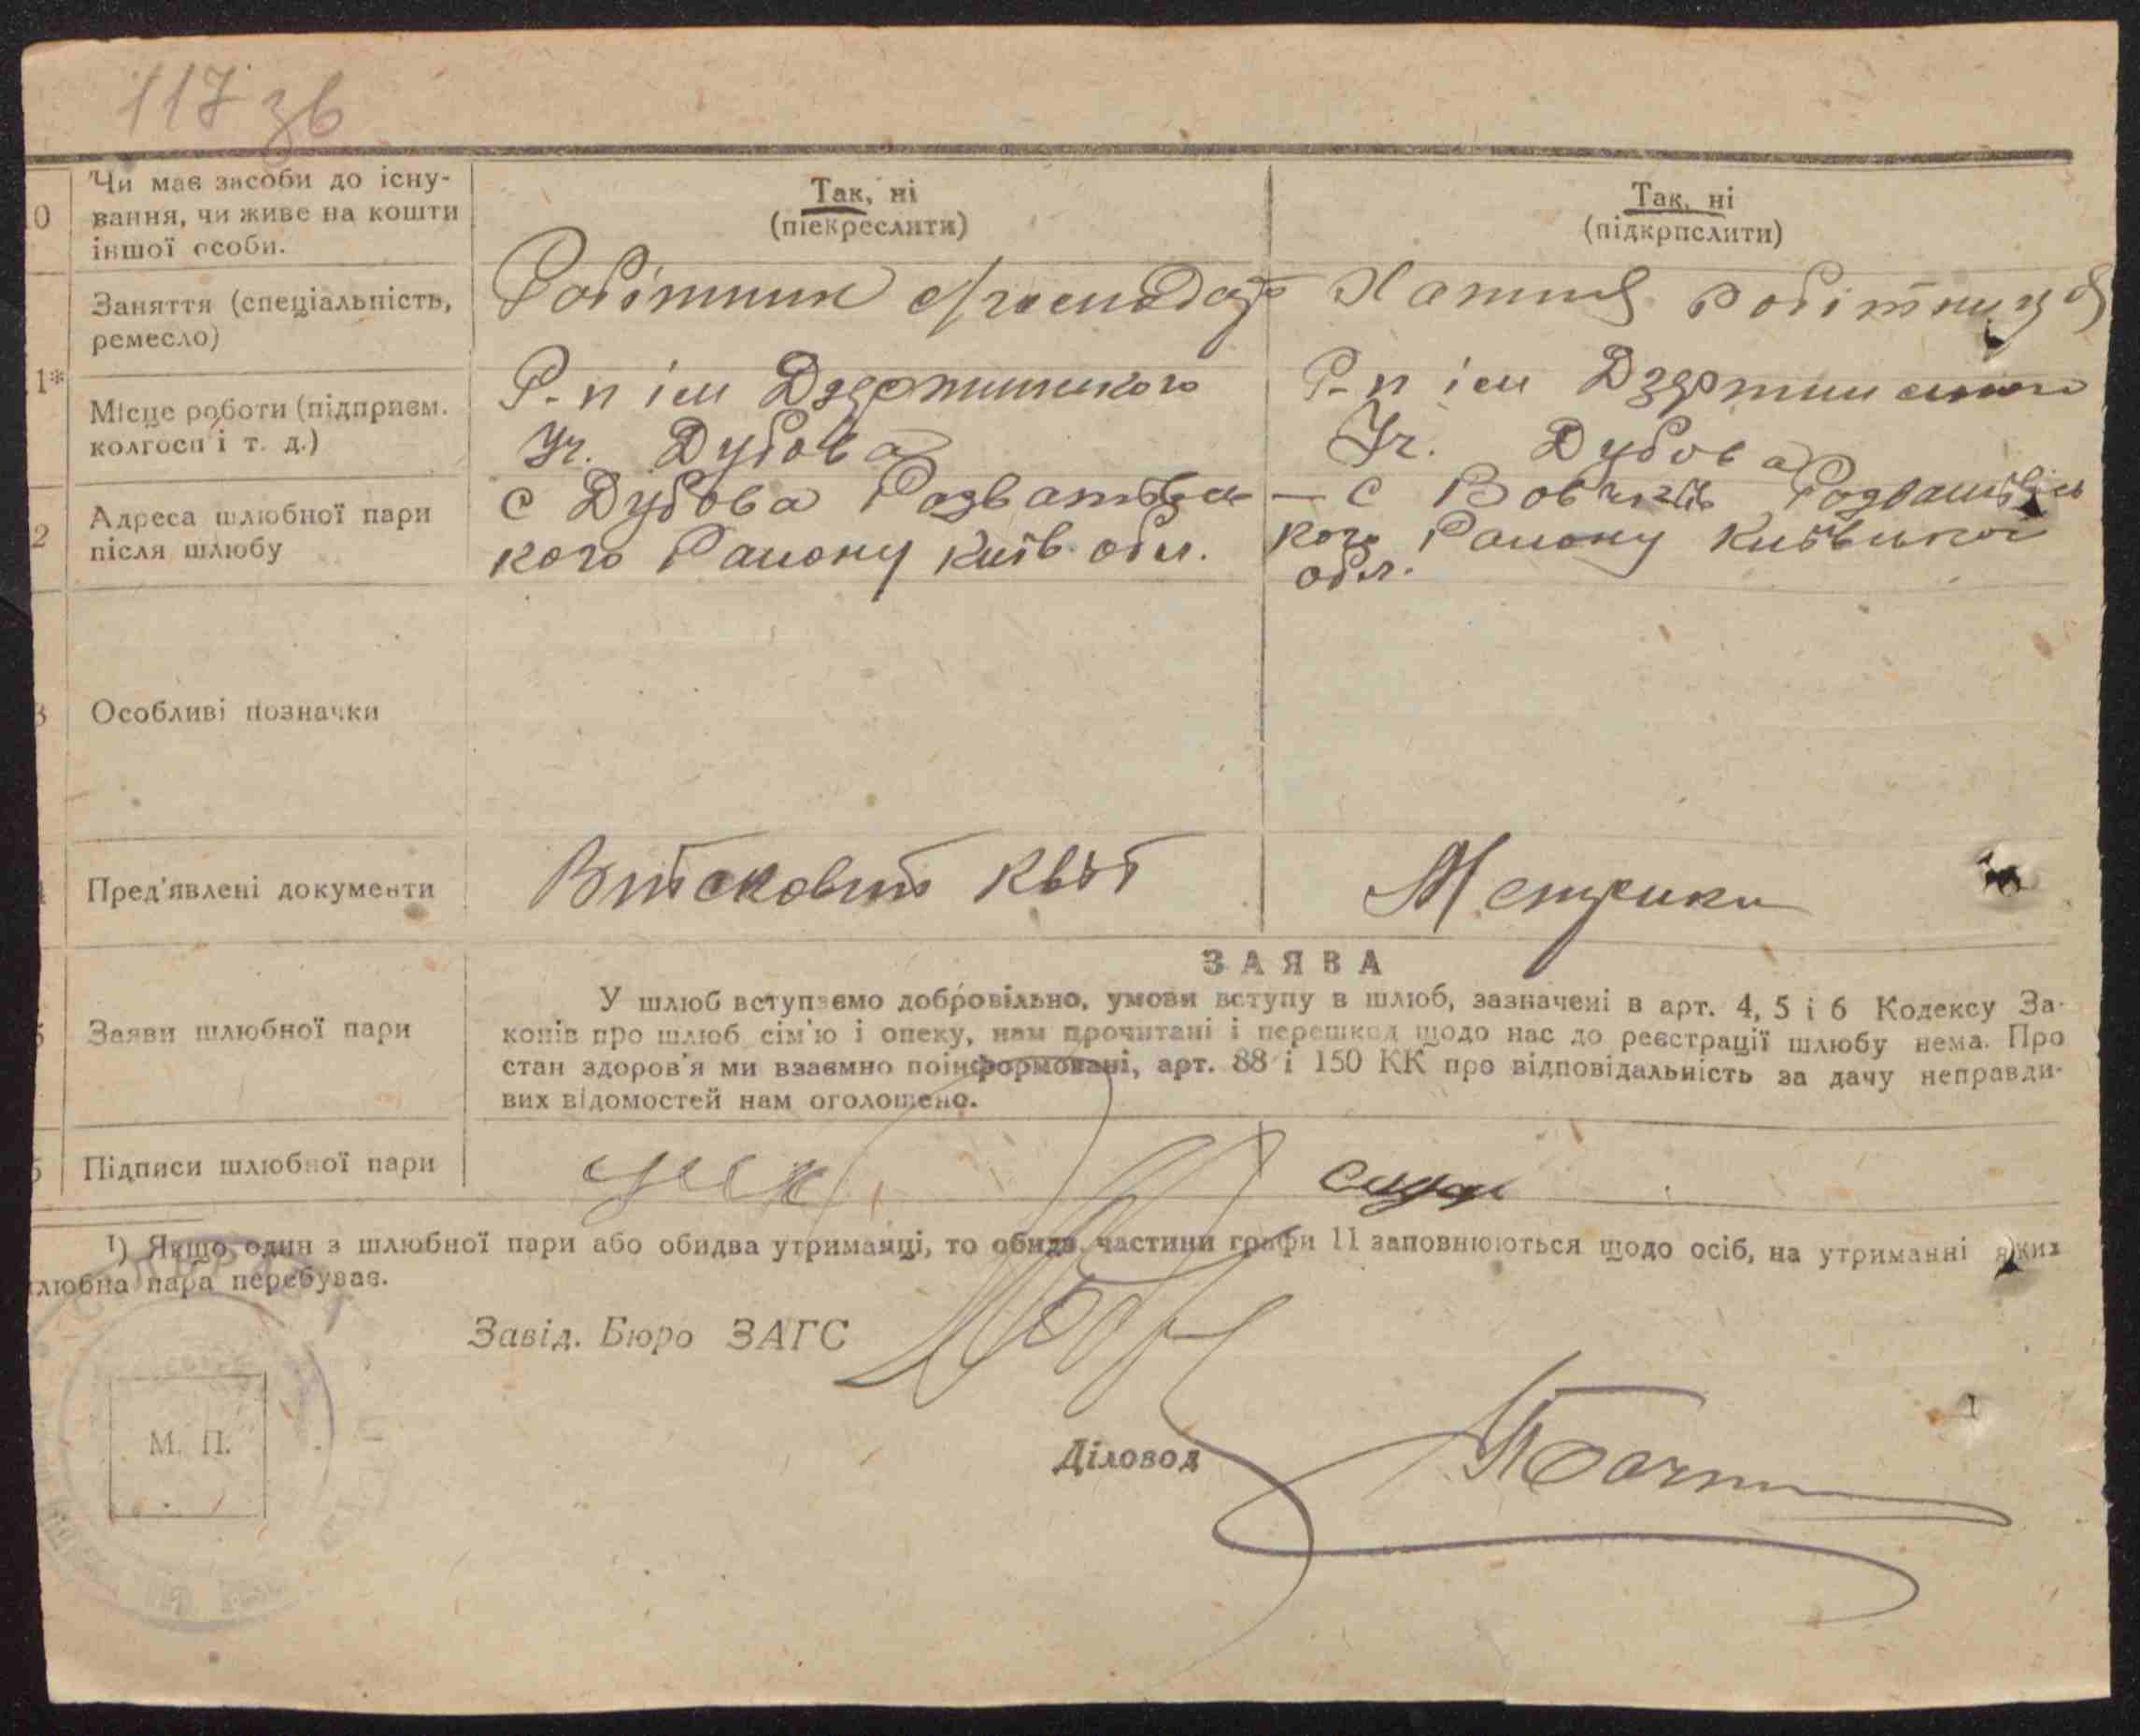 117 зв
0
Чи має засоби до існу-
вання, чи живе на кошти
іншої особи.
Так, ні
(піекреслити)
Так, ні
(підкрпслити)
1*
Заняття (спеціальність,
ремесло)
Робітник с/господар
Хатня робітниця
Місце роботи (підприєм.
колгосп і т. д.)
Р-п ім Дзержинського
Уч. Дубова
Р-п ім Дзержинського
Уч. Дубова
2
Адреса шлюбної пари
після шлюбу
с Дубова Розважівсь-
кого Району Київ. обл.
— с Вовчків Розважівсь
кого Району Київської
обл.
3
Особливі позначки
Пред'явлені документи
Військовий квит
Метрики
5
Заяви шлюбної пари
ЗАЯВА
У шлюб вступаємо добровільно, умови вступу в шлюб, зазначені в арт. 4, 5 і 6 Кодексу За-
конів про шлюб сім'ю і опеку, нам прочитані і перешкод щодо нас до реєстрації шлюбу нема. Про
стан здоров'я ми взаємно поінформовані, арт. 88 і 150 КК про відповідальність за дачу неправди-
вих відомостей нам оголошено.
Підписи шлюбної пари
1) Якщо один з шлюбної пари або обидва утриманці, то обидв. частини графи 11 заповнюються щодо осіб, на утриманні яких
шлюбна пара перебуває.
Завід. Бюро ЗАГС
М. П.
Діловод